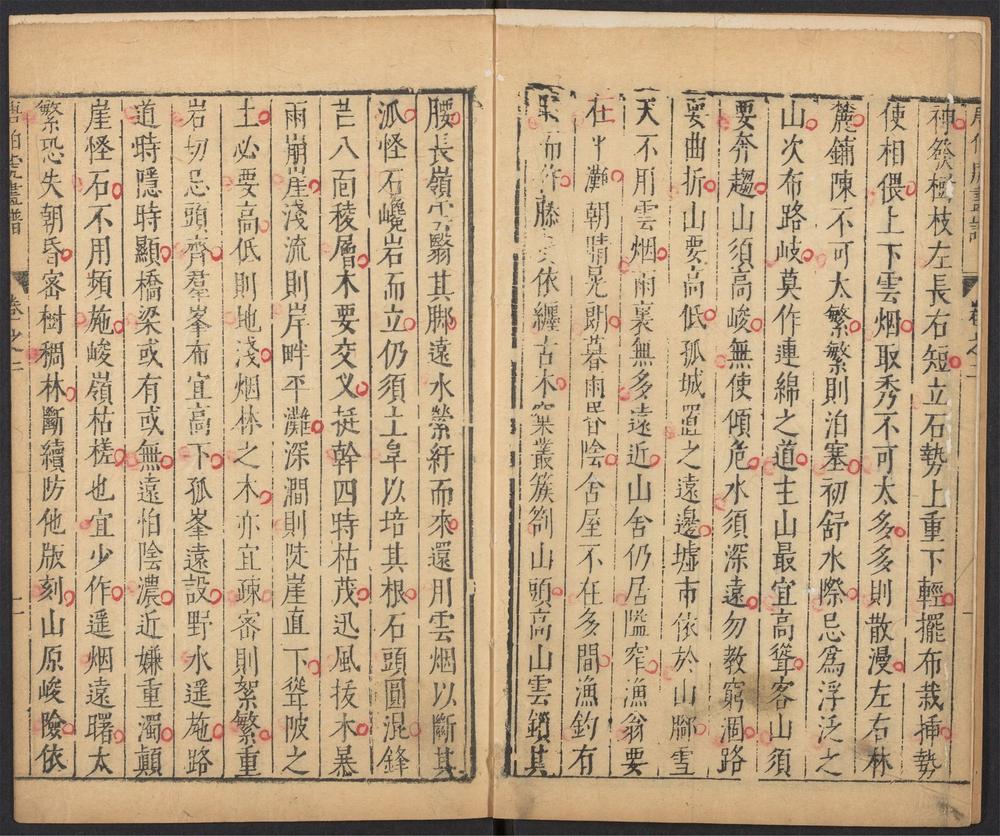 唐伯虎畫譜 卷之二
神發樹枝左長右短立石勢上重下輕擺布栽揷勢
使相偎上下雲烟取秀不可太多多則散漫左右林
麓鋪陳不可太繁繁則泊塞初舒水際忌爲浮泛之
山次布路岐莫作連綿之道主山最宜高聳客山須
要奔趨山須高峻無使傾危水須深遠勿教窮涸路
要曲折山要高低孤城置之遠邊墟市依於山脚雪
天不用雲烟雨裏無多遠近山舍仍居隘窄漁翁要
在平灘朝晴晃朗暮雨昏陰舍屋不在多間漁釣有
而作藤 依纒古木窠叢簇劄山頭高山雲鎖其
腰長嶺雲翳其脚遠水縈紆而來還用雲烟以斷其
派怪石巉岩而立仍須土阜以培其根石頭圓混鋒
芒八面稜層木要交义挺幹四特枯茂迅風拔木暴
雨崩崖淺流則岸畔平灘深澗則陡崖直下聳陂之
土必要高低則地淺烟林之木亦宜疎密則絮繁重
岩切忌頭齊羣峯布宜高下孤峯遠設野水遥施路
道時隱時顯橋梁或有或無遠怕陰濃近嫌重濁顛
崖怪石不用頻施峻嶺枯槎也宜少作遥烟遠曙太
繁恐失朝昏密樹稠林斷續防他版刻山原峻險依
唐伯虎畫譜 卷之二 二